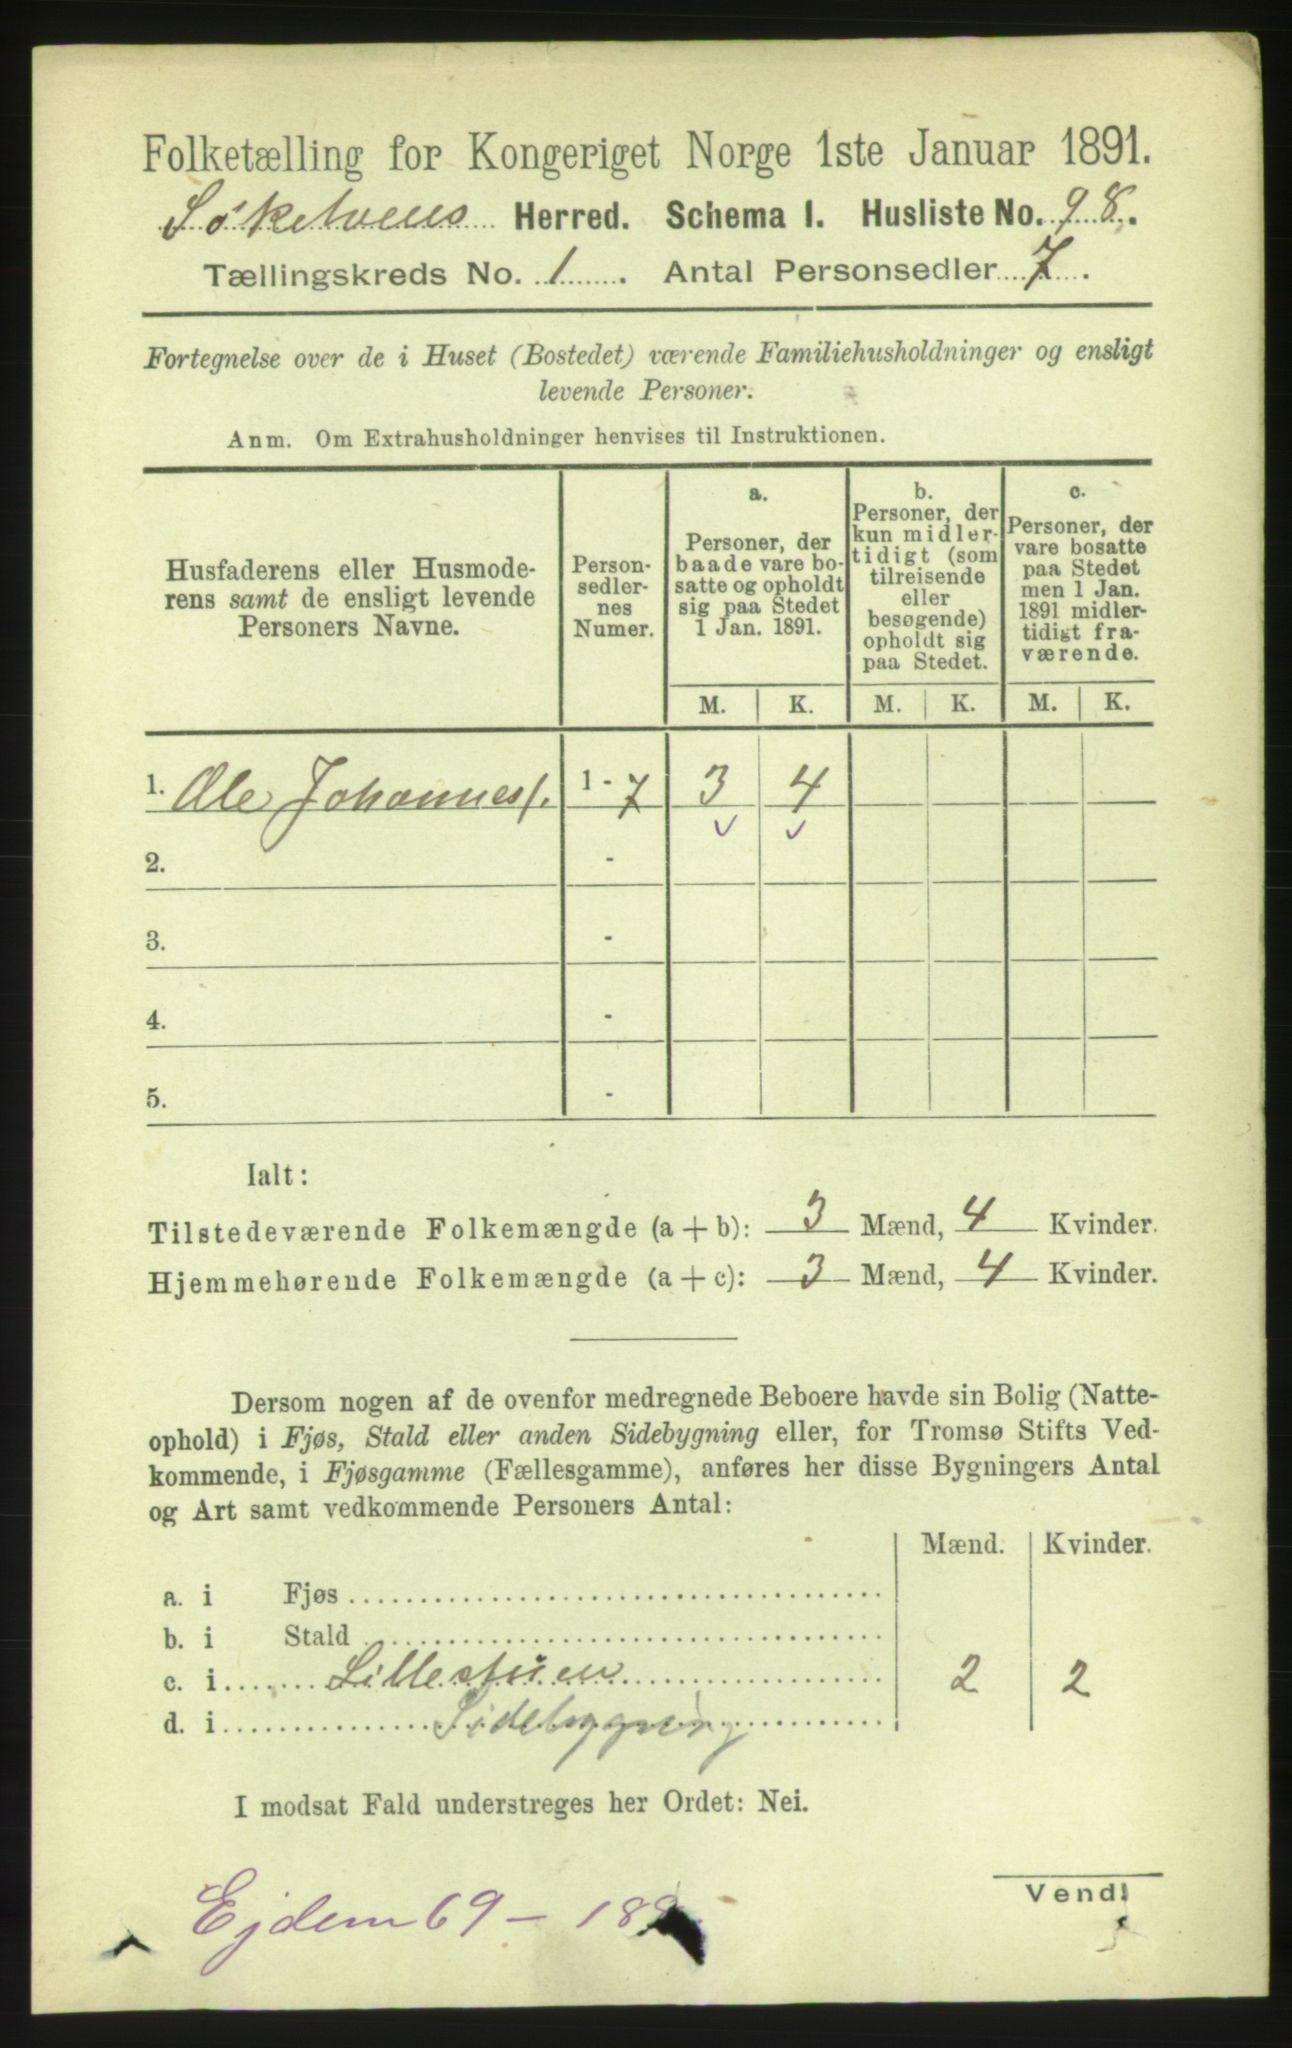 Folketælling for Kongeriget Norge 1ste Januar 1891.
Søkelvens Herred. Schema I. Husliste No. 98.
Tællingskreds No. 1. Antal Personsedler 7.
Fortegnelse over de i Huset (Bostedet) værende Familiehusholdninger og ensligt
levende Personer.
Anm. Om Extrahusholdninger henvises til Instruktionen.
Husfaderens eller Husmode-
rens samt de ensligt levende
Personers Navne.
Person-
sedler-
nes
Numer.
a.
Personer, der
baade vare bo-
satte og opholdt
sig paa Stedet
1 Jan. 1891.
b.
Personer, der
kun midler-
tidigt (som
tilreisende
eller
besøgende)
opholdt sig
paa Stedet.
c.
Personer, der
vare bosatte
paa Stedet
men 1 Jan.
1891 midler-
tidigt fra-
værende.
M. K. M. K. M. K.
1. Ole Johanness. 1 - 7 3 4
2. -
3. -
4. -
5. -
Ialt:
Tilstedeværende Folkemængde (a + b): 3 Mænd, 4 Kvinder.
Hjemmehørende Folkemængde (a + c): 3 Mænd, 4 Kvinder.
Dersom nogen af de ovenfor medregnede Beboere havde sin Bolig (Natte-
ophold) i Fjøs, Stald eller anden Sidebygning eller, for Tromsø Stifts Ved-
kommende, i Fjøsgamme (Fællesgamme), anføres her disse Bygningers Antal
og Art samt vedkommende Personers Antal:
Mænd. Kvinder.
a. i Fjøs
b. i Stald
c. i Lillestuen 2 2
d. i Sidebygning
I modsat Fald understreges her Ordet: Nei.
Vend!
Ejdem 69 -